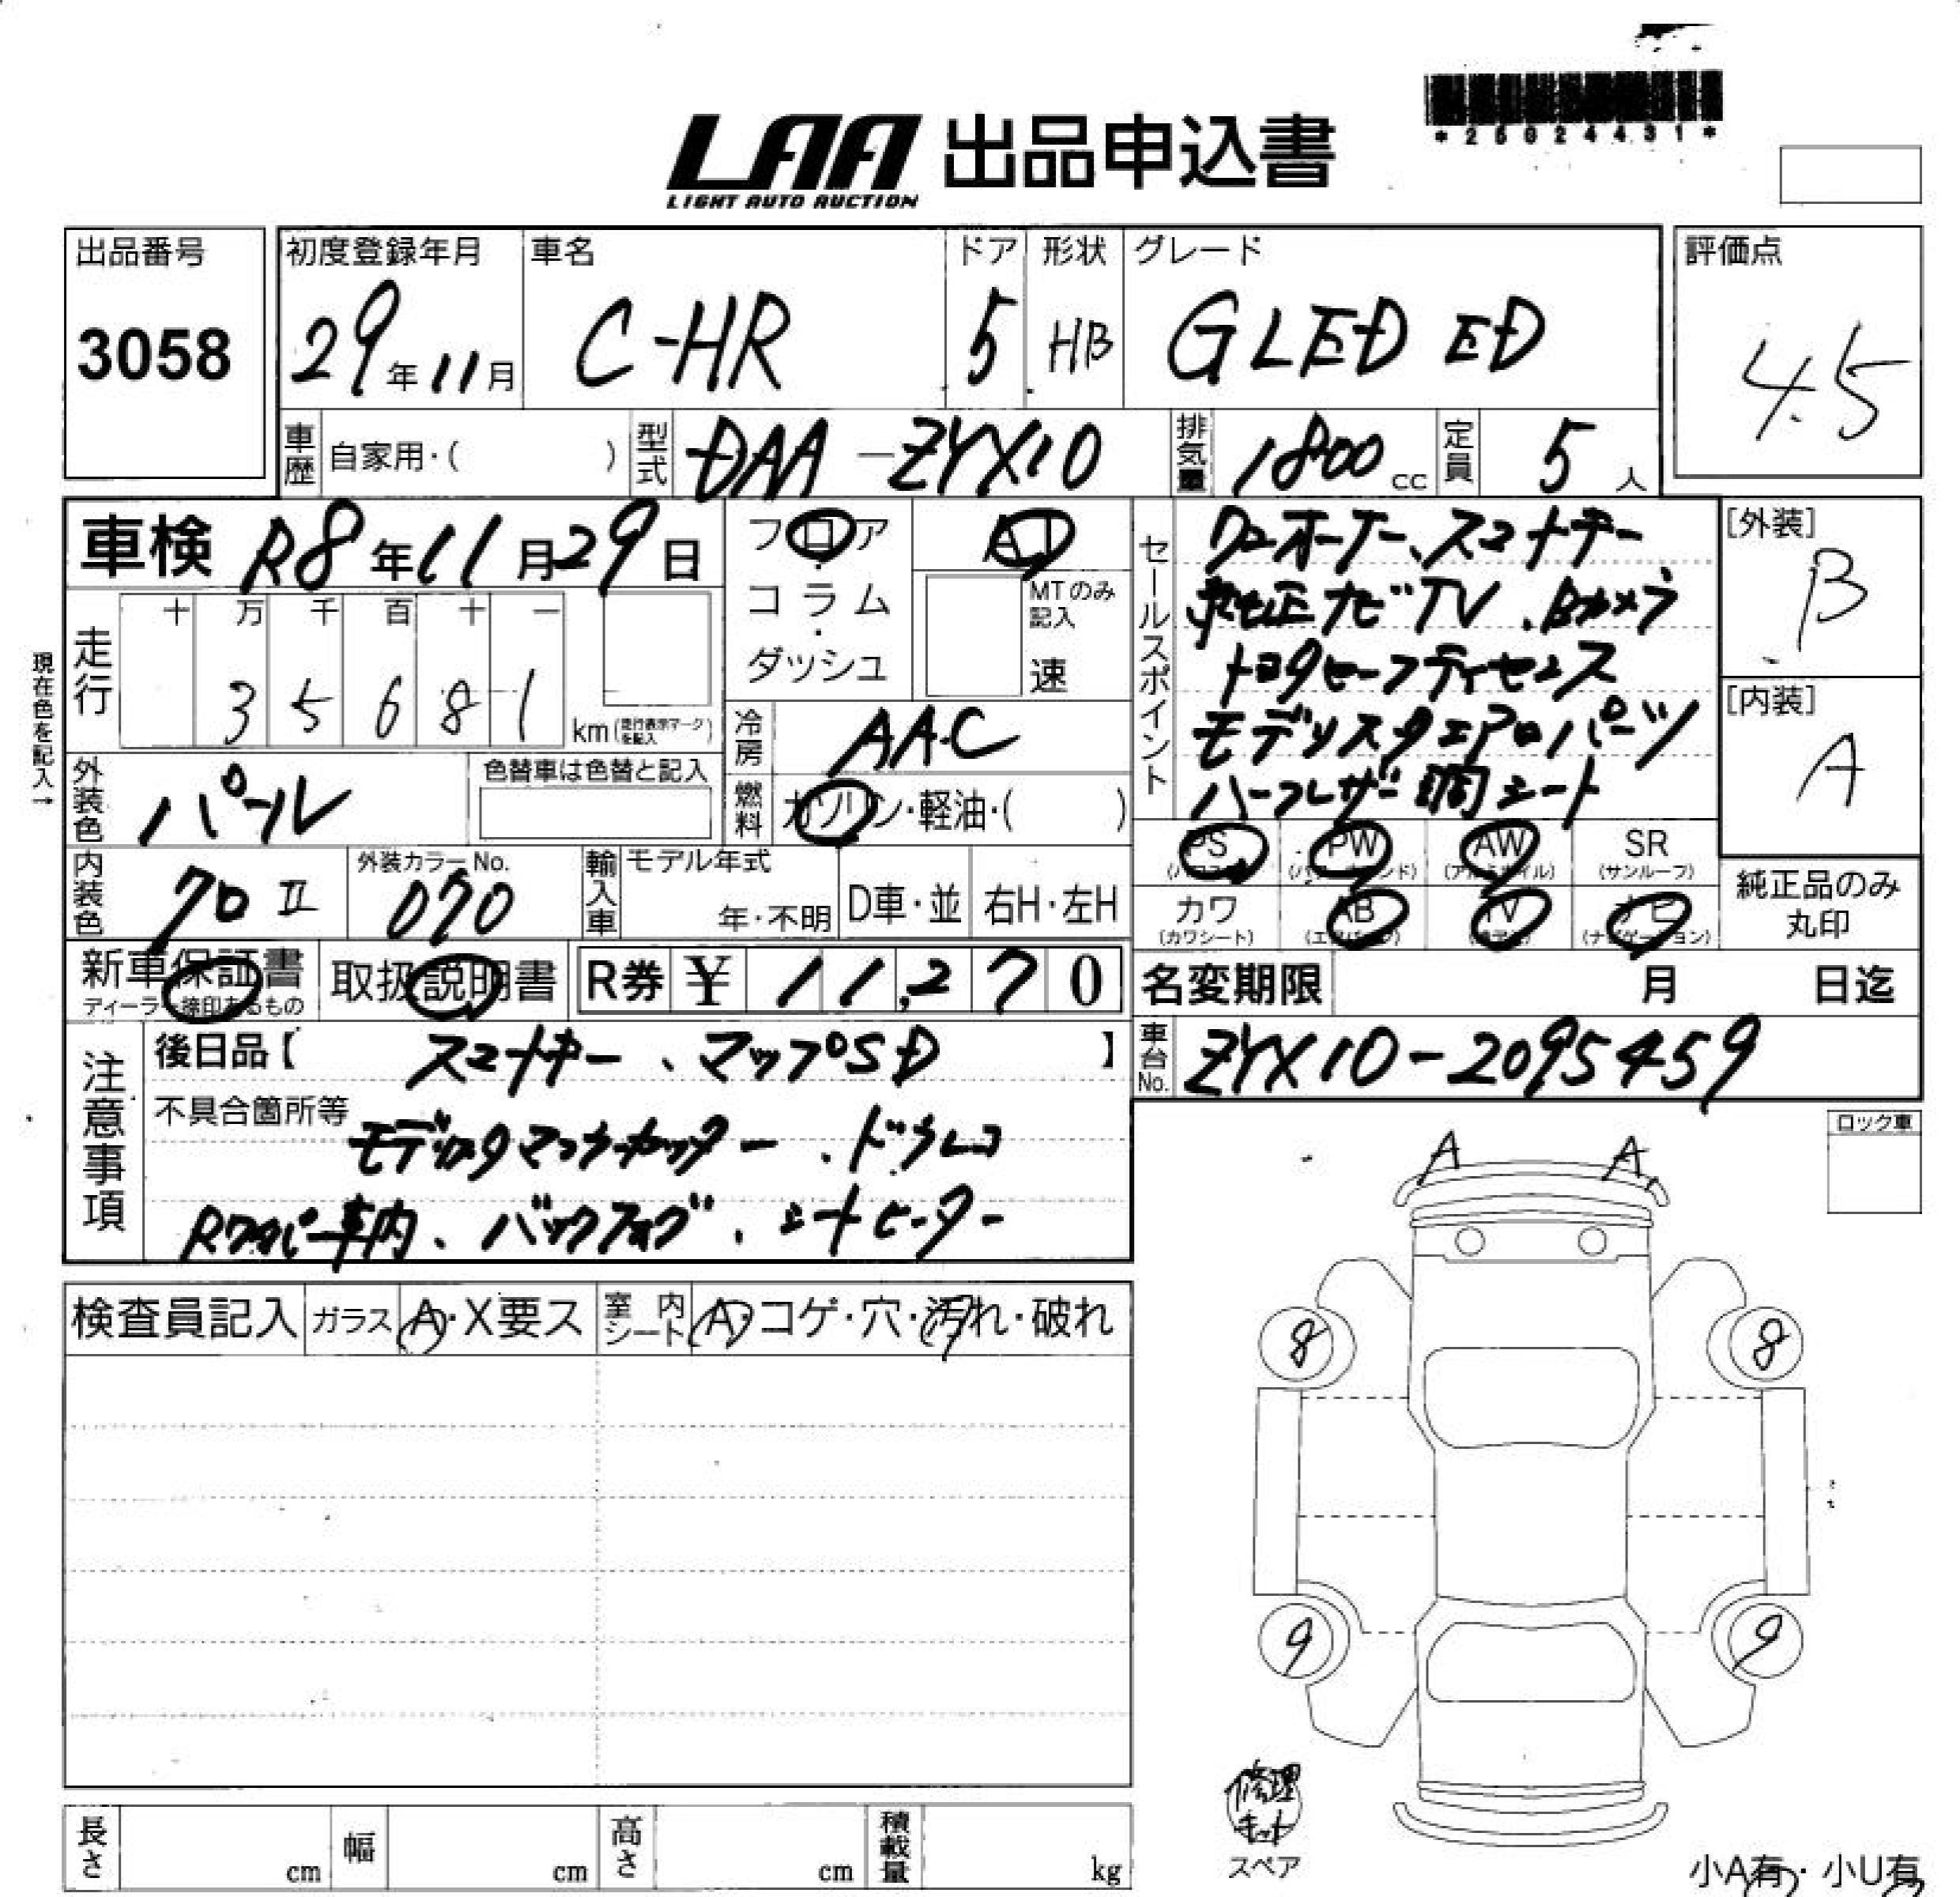 *25024431*
LAA 出品申込書
LIGHT AUTO AUCTION
出品番号 初度登録年月 車名 ドア 形状 グレード 評価点
3058 29年11月 C-HR 5 HB G LED ED 4.5
車歴 自家用・( ) 型式 DAA-ZYX10 排気量 1800cc 定員 5人
車検 R8年11月29日 フロア AT
コラム・ダッシュ MTのみ記入 速
セールスポイント
ワンオーナー、スマートキー
純正ナビTV、Bカメラ
トヨタセーフティセンス
モデリスタエアロパーツ
ハーフレザー調シート
[外装] B
[内装] A
現在色を記入→
走行 十 万 千 百 十 一
35681 km(走行表示マークを記入)
冷房 AAC
外装色 パール 色替車は色替と記入
燃料 ガソリン・軽油・( )
PS PW AW SR
(サンルーフ)
カワ AB TV ナビ
(カワシート) (エアバッグ) (ナビゲーション)
純正品のみ丸印
内装色 クロ II 外装カラーNo. 070 輸入車 モデル年式 年・不明 D車・並 右H・左H
新車保証書 取扱説明書 R券 ¥ 11,270
ディーラー捺印あるもの
名変期限 月 日迄
注意事項 後日品【 スマートキー、マップSD 】
車台No. ZYX10-2095459
不具合箇所等
モデリスタマフラーカッター、ドラレコ
車内、バックフォグ、シートヒーター
ロック車
A A
検査員記入 ガラス A・X要ス 室内シート A・コゲ・穴・汚れ・破れ
8 8
9 9
修理キット
スペア
長さ cm 幅 cm 高さ cm 積載量 kg
小A有・小U有